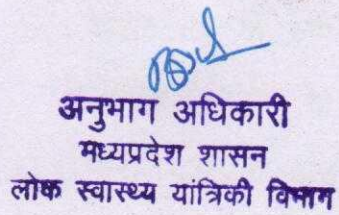 अनुभाग अधिकारी
मध्यप्रदेश शासन
लोक स्वास्थ्य यांत्रिकी विभाग